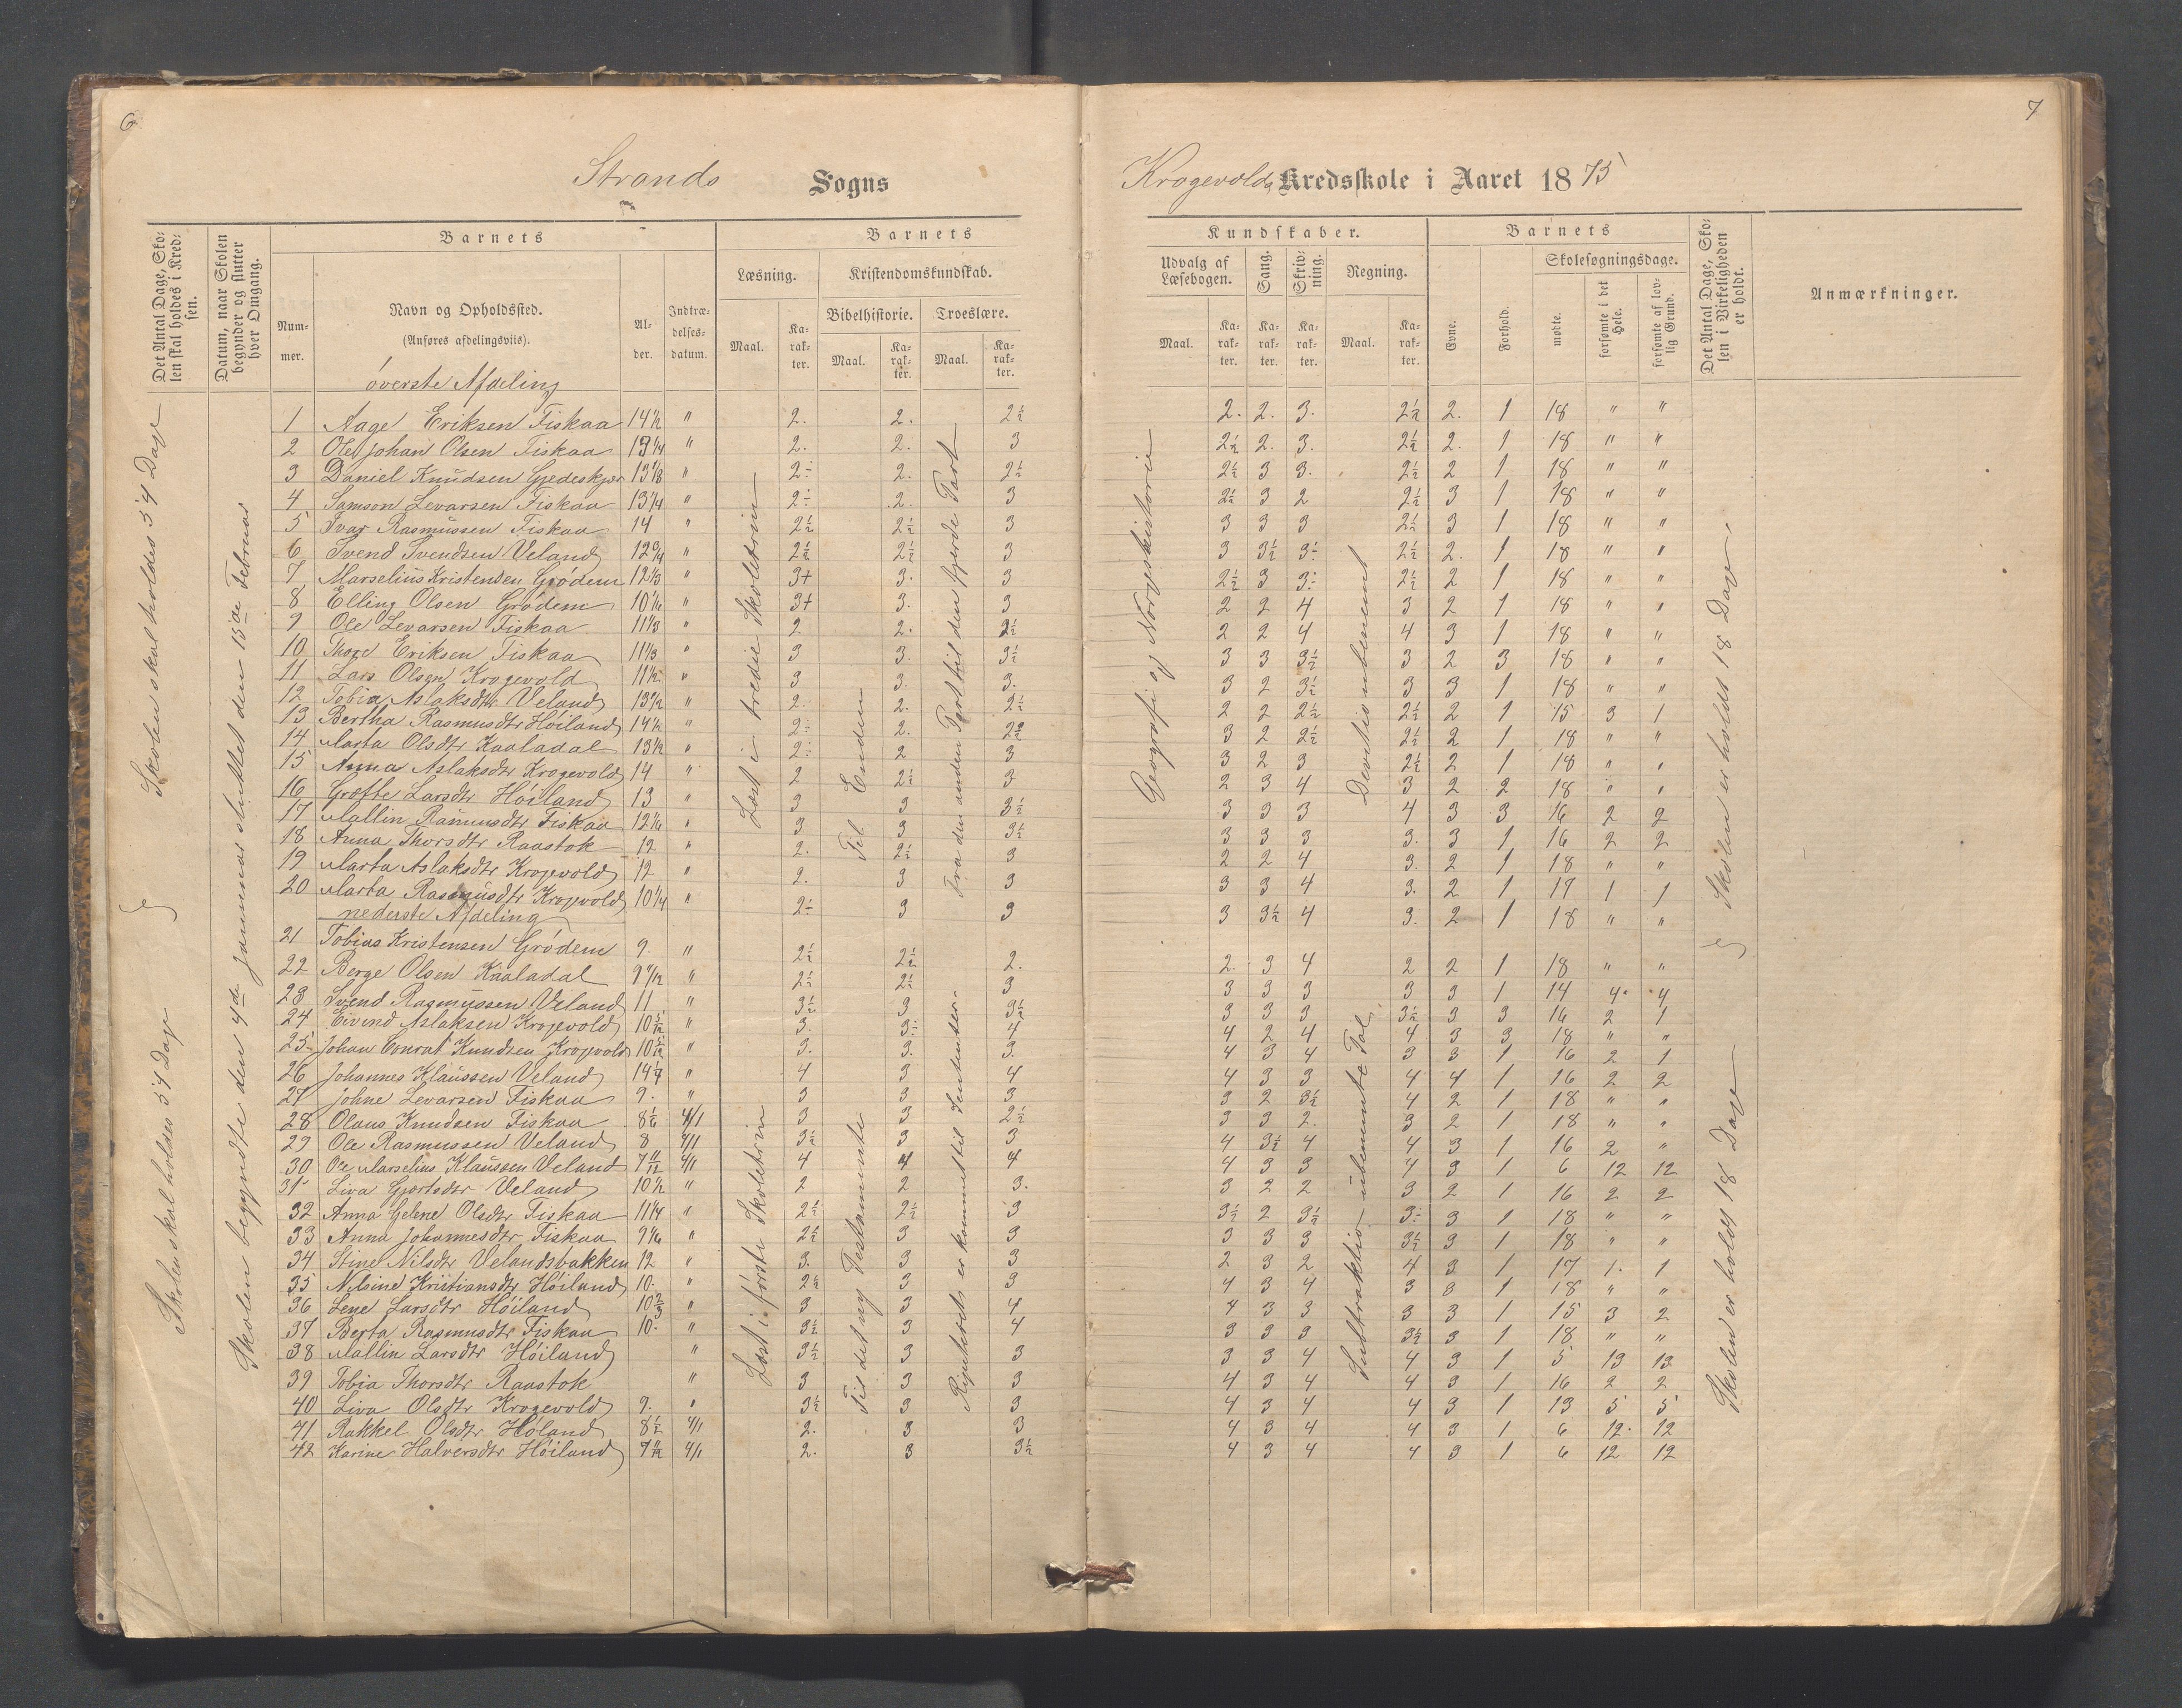 6
7
Strands Sogns
Krogevolds Kredsskole i Aaret 1875
Det Antal Dage, Skolen skal holdes i Kredsen.
Datum, naar Skolen begynder og slutter hver Omgang.
Barnets
Nummer.
Navn og Opholdssted.
(Anføres afdelingsviis).
Alder.
Indtrædelsesdatum.
Barnets
Læsning.
Kristendomskundskab.
Bibelhistorie. Troeslære.
Maal. Karakter. Maal. Karakter. Maal. Karakter.
Kundskaber.
Udvalg af Læsebogen. Sang. Skrivning. Regning.
Maal. Karakter. Karakter. Karakter. Maal. Karakter.
Barnets
Evne. Forhold.
Skolesøgningsdage.
mødte. forsømte i det Hele. forsømte af lovlig Grund.
Det Antal Dage, Skolen i Virkeligheden er holdt.
Anmærkninger.
øverste Afdeling
1 Aage Eriksen Fiskaa 14 1/2 " 2. 2. 2 1/2 2. 2. 3. 2 1/2 2. 1 18 " "
2 Ole Johan Olsen Fiskaa 13 1/4 " 2. 2. 3 2 1/2 2. 3. 2 1/2 2. 1 18 " "
3 Daniel Knudsen Gjedeskjær 13 1/8 " 2 ÷ 2. 2 1/2 2 1/2 3 3. 2 1/2 2 1 18 " "
4 Samson Levarsen Fiskaa 13 1/4 " 2 ÷ 2. 3 2 1/2 3 2 2 1/2 3 1 18 " "
5 Ivar Rasmussen Fiskaa 14 " 2 1/2 2 1/2 3 3 3 3 2 1/2 3 1 18 " "
6 Svend Svendsen Veland 12 3/4 " 2 1/2 2 1/2 3 3 3 1/2 3 ÷ 2 1/2 2. 1 18 " "
7 Marselius Kristensen Grödem 12 1/3 " 3+ 3. 3 2 1/2 3 3 ÷ 2 1/2 2 1 18 " "
8 Elling Olsen Grödem 10 1/6 " 3+ 3. 3 2 2 4 3 2 1 18 " "
9 Ole Levarsen Fiskaa 11 1/3 " 2 2. 2 1/2 2 2 4 4 3 1 18 " "
10 Thore Eriksen Fiskaa 11 1/3 " 3 3. 3 1/2 3 3 3 1/2 3 2 3 18 " "
11 Lars Olsen Krogevold 11 1/2 " 3 3. 3. 3 2 3 1/2 3 3 1 18 " "
12 Tobia Aslaksdtr Veland " 2. 2. 2 1/2 2 2 2 1/2 2 1/2 2 1 15 3 1
13 Bertha Rasmusdtr Höiland 14 1/2 " 2 ÷ 2. 3 2 2 1/2 2 1/2 2 1 18 " "
14 Marta Olsdtr Kaaladal 13 1/2 " 2 ÷ 2 3 3 2 3 2 1/2 2 1 18 " "
15 Anna Aslaksdtr Krogevold 14 " 2 2 1/2 3 2 3 4 3 2 2 18 " "
16 Grøtte Larsdtr Höiland 13 " 3 3 3 1/2 3 3 3 4 3 3 16 2 2
17 Mallin Rasmusdtr Fiskaa 12 1/6 " 3 3 3 1/2 3 3 3 3. 3 1 16 2 2
18 Anna Thorsdtr Raastok 12 " 2. 2 1/2 3 2 2 4 3. 2 1 18 " "
19 Marta Aslaksdtr Krogevold 12 " 2. 3 3 3 3 4 3. 2 1 17 1 1
20 Marta Rasmusdtr Krogevold 10 1/4 " 2 ÷ 3 3 3 3 1/2 4 3. 2 1 18 " "
nederste Afdeling
21 Tobias Kristensen Grödem 9. " 2 1/2 2 1/2 2. 2. 3 4 2 2 1 18 " "
22 Berge Olsen Kaaladal " 2 1/2 2 1/2 3 3 3 3 3 3 1 14 4. 4
23 Svend Rasmussen Veland 11 " 3 1/2 3 3 1/2 3 3 3 3 1/2 3 3 16 2 1
24 Eivind Aslaksen Krogevold 10 5/12 " 3. 3 ÷ 4 4 2 4 4 3 3 18 " "
25 Johan Conrat Knudsen Krogevold 10 5/12 " 3. 3. 3. 4 3 4 3 3 1 16 2 1
26 Johannes Klaussen Veland " 4 3 4 4 3 3 4 4 1 16 2 2
27 Johne Levarsen Fiskaa 9. " 3 3 3 3 2 3 1/2 4 2 1 18 " "
28 Olaus Knudsen Fiskaa 8 1/6 4/1 3 3 2 1/2 3 3 2. 3 2 1 18 " "
29 Ole Rasmussen Veland 8 4/1 3 1/2 3 3 4 3 1/2 4 4 3 1 16 2 "
30 Ole Marselius Klaussen Veland 7 11/12 4/1 4 4 4 4 3 3 4 3 1 6 12 12
31 Liva Gjertsdtr Veland 10 1/2 " 2 2 3. 3 2 2 3 2 1 16 2 2
32 Anna Gelene Olsdtr Fiskaa 11 1/4 " 2 1/2 2 1/2 3 3 1/2 2 3 1/2 3 ÷ 3 1 18 " "
33 Anna Johannesdtr Fiskaa 9 1/6 " 2 1/2 3 3 3 3 3 3 1/2 3 1 18 " "
34 Stine Nilsdtr Velandsbakken 12 " 3. 3 3 2 3 2 4 3 1 17 1. 1
35 Nilsine Kristiansdtr Höiland 10. " 2 1/2 3 3 4 3 4 3 3 1 18 " "
36 Lene Larsdtr Höiland 10 2/3 " 3 3 4 4 3 3 3 3 1 15 3 2
37 Berta Rasmusdtr Fiskaa 10. " 3 1/2 3 4 3 3 3 3 1/2 3 1 18 " "
38 Mallin Larsdtr Höiland " 3 1/2 3 3 3 3 4 4 3 1 5 13 13
39 Tobia Thorsdtr Raastok " 3 3 3 4 3 4 4 3 1 16 2 2
40 Liva Olsdtr Krogevold 9. " 3 1/2 3 3 4 3 4 4 3 1 13 5 5
41 Rakkel Olsdtr Höland 8 1/2 4/1 2. 3 3 4 3 4 4 3 1 6 12. 12
42 Karine Halversdtr Höiland 4/1 2. 3 3 1/2 4 3 4 4 3 1 6 12 12
Skolen skal holdes 54 Dage
Skolen skal holdes 54 Dage
Skolen begyndte den 4de Januar sluttet den 15de Februar
Læst i tredie Skoletrin
Læst i förste Skoletrin
Til Enden
Til det ny Testamente
Fra den anden Part til den fjerde Part
Er kommet til Sentenser
Geografi og Norgeshistorie
Devitio ubenevnt
Subtraktio ubenevnte Tal
Skolen er holdt 18 Dage
Skolen er holdt 18 Dage